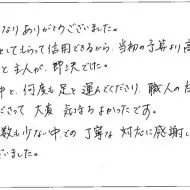 なりありがとうございました。
としてもらって信用できるから、当初の予算より高
と主人が、即決でした。
中と、何度も足を運んでくださり、職人の方
ださって 大変 気持ちよかったです。
数も少ない中での 丁寧な 対応に感謝し
ざいました。